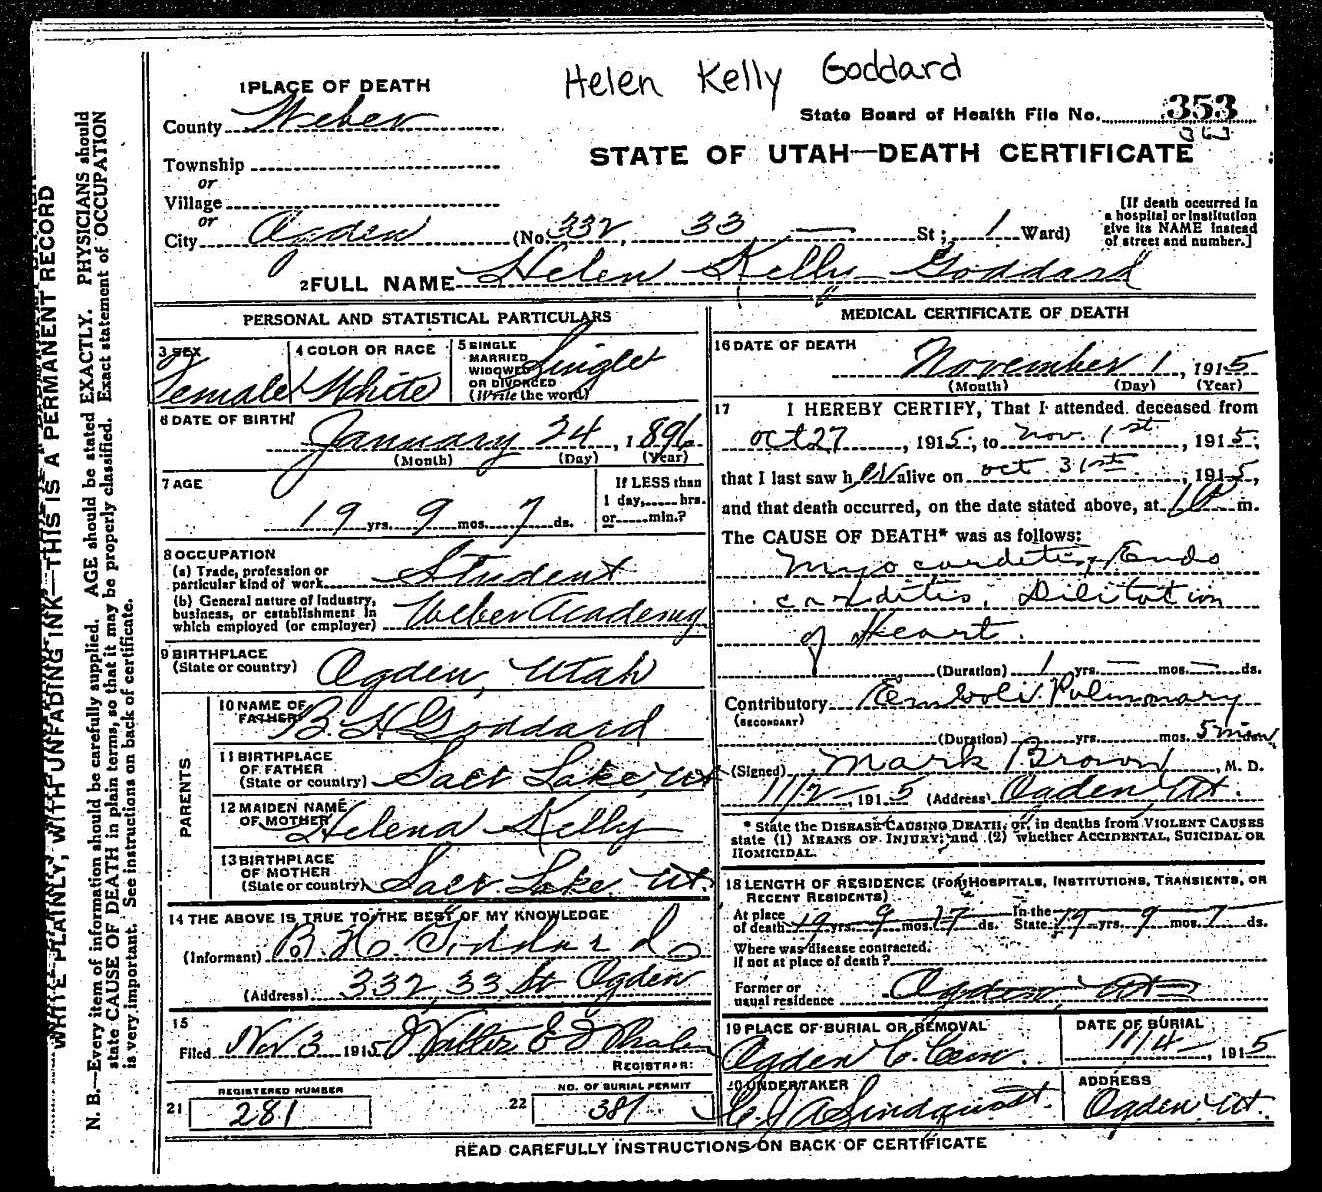 Helen Kelly Goddard
1 PLACE OF DEATH
County Weber
State Board of Health File No. 353
363
STATE OF UTAH—DEATH CERTIFICATE
Township
or
Village
or
City Ogden (No. 332, 33 — St; 1 Ward)
[If death occurred in
a hospital or institution
give its NAME instead
of street and number.]
2 FULL NAME Helen Kelly Goddard
PERSONAL AND STATISTICAL PARTICULARS
3 SEX
Female
4 COLOR OR RACE
White
5 SINGLE
MARRIED
WIDOWED
OR DIVORCED
(Write the word)
Single
6 DATE OF BIRTH
January 24, 1896
(Month) (Day) (Year)
7 AGE
19 yrs. 9 mos. 7 ds.
If LESS than
1 day,......hrs.
or......min.?
8 OCCUPATION
(a) Trade, profession or
particular kind of work Student
(b) General nature of industry,
business, or establishment in
which employed (or employer) Weber Academy
9 BIRTHPLACE
(State or country) Ogden, Utah
PARENTS
10 NAME OF
FATHER B. H Goddard
11 BIRTHPLACE
OF FATHER
(State or country) Salt Lake, Ut
12 MAIDEN NAME
OF MOTHER Helena Kelly
13 BIRTHPLACE
OF MOTHER
(State or country) Salt Lake Ut.
14 THE ABOVE IS TRUE TO THE BEST OF MY KNOWLEDGE
(Informant) B. H. Goddard
(Address) 332, 33 St Ogden
15
Filed Nov 3 1915 Walter E
REGISTRAR:
REGISTERED NUMBER
21 281
NO. OF BURIAL PERMIT
22 381
MEDICAL CERTIFICATE OF DEATH
16 DATE OF DEATH
November 1, 1915
(Month) (Day) (Year)
17 I HEREBY CERTIFY, That I attended deceased from
Oct 27, 1915, to Nov. 1st., 1915,
that I last saw h er alive on Oct 31st, 1915,
and that death occurred, on the date stated above, at 1 P m.
The CAUSE OF DEATH* was as follows:
Myocarditis, Endo
carditis, Dilitation
of Heart.
(Duration) 1 yrs. — mos. — ds.
Contributory Emboli Pulmonary
(SECONDARY)
(Duration) yrs. mos. 5 min
(Signed) Mark Brown, M. D.
11/2, 1915 (Address) Ogden, Ut.
* State the DISEASE CAUSING DEATH, or, in deaths from VIOLENT CAUSES
state (1) MEANS OF INJURY; and (2) whether ACCIDENTAL, SUICIDAL OR
HOMICIDAL.
18 LENGTH OF RESIDENCE (FOR HOSPITALS, INSTITUTIONS, TRANSIENTS, OR
RECENT RESIDENTS)
At place
of death 19 yrs. 9 mos. 7 ds. In the
State 19 yrs. 9 mos. 7 ds.
Where was disease contracted,
if not at place of death?
Former or
usual residence Ogden, Ut
19 PLACE OF BURIAL OR REMOVAL
Ogden C. Cem.
DATE OF BURIAL
11/4, 1915
20 UNDERTAKER
Lindquist.
ADDRESS
Ogden Ut.
READ CAREFULLY INSTRUCTIONS ON BACK OF CERTIFICATE
WRITE PLAINLY, WITH UNFADING INK—THIS IS A PERMANENT RECORD
N. B.—Every item of information should be carefully supplied. AGE should be stated EXACTLY. PHYSICIANS should
state CAUSE OF DEATH in plain terms, so that it may be properly classified. Exact statement of OCCUPATION
is very important. See instructions on back of certificate.